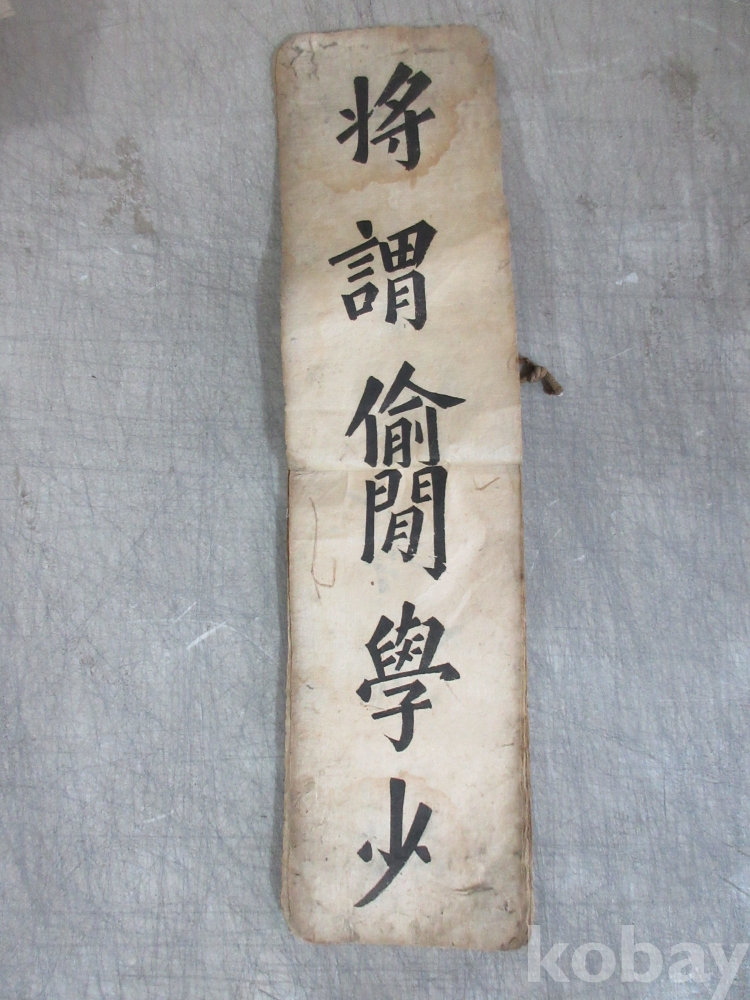 将謂偷閒學少
kobay